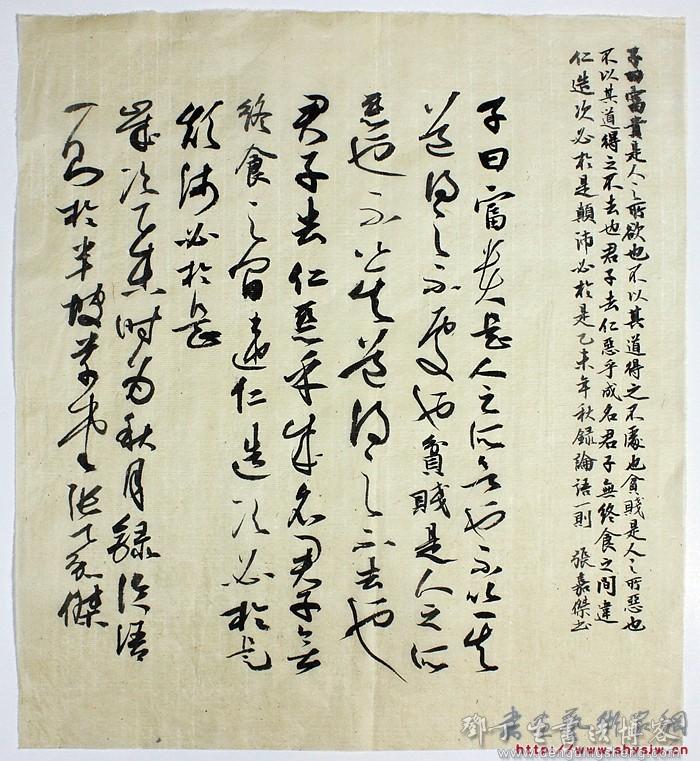 子曰富貴是人之所欲也不以其道得之不處也貧賤是人之所惡也
不以其道得之不去也君子去仁惡乎成名君子無終食之間違
仁造次必於是顛沛必於是乙未年秋録論語一則 張嘉傑書
子曰富貴是人之所欲也不以其
道得之不處也貧賤是人之所
惡也不以其道得之不去也
君子去仁惡乎成名君子無
終食之間違仁造次必於是
顛沛必於是
歲次乙未時為秋月録論語
一則於半坡草堂張嘉傑
http://www.shysjw.cn